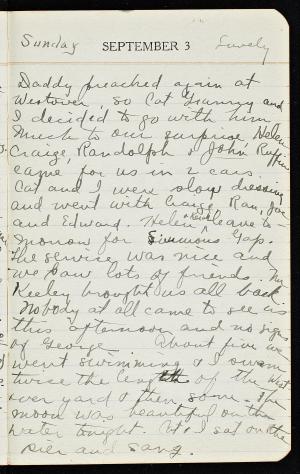 Sunday SEPTEMBER 3 Lovely
Daddy preached again at
Westover, so Cat Granny and
I decided to go with him.
Much to our surprise Helen
Craige, Randolph & John Ruffin
came for us in 2 cars.
Cat and I were slow dressing
and went with Craige, Ran, Joe
and Edward. Helen & leave to-
morrow for Simmons Gap.
The service was nice and
we saw lots of friends. Mr
Keeley brought us all back
Nobody at all came to see us
this afternoon and no signs
of George. About five we
went swimming & I swam
twice the length of the West
over yard & then some. The
moon was beautiful on the
water tonight. Cat & I sat on the
pier and sang.